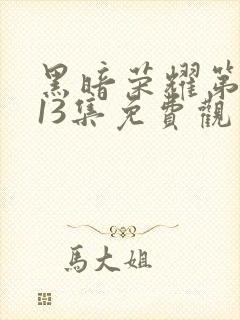 黑暗荣耀第
13集免費觀
馬大姐